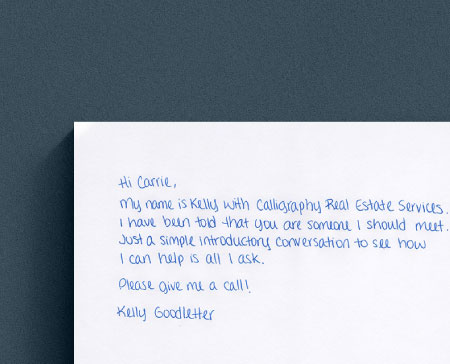 Hi Carrie,
My name is Kelly with Calligraphy Real Estate Services.
I have been told that you are someone I should meet.
Just a simple introductory conversation to see how
I can help is all I ask.
Please give me a call!
Kelly Goodletter